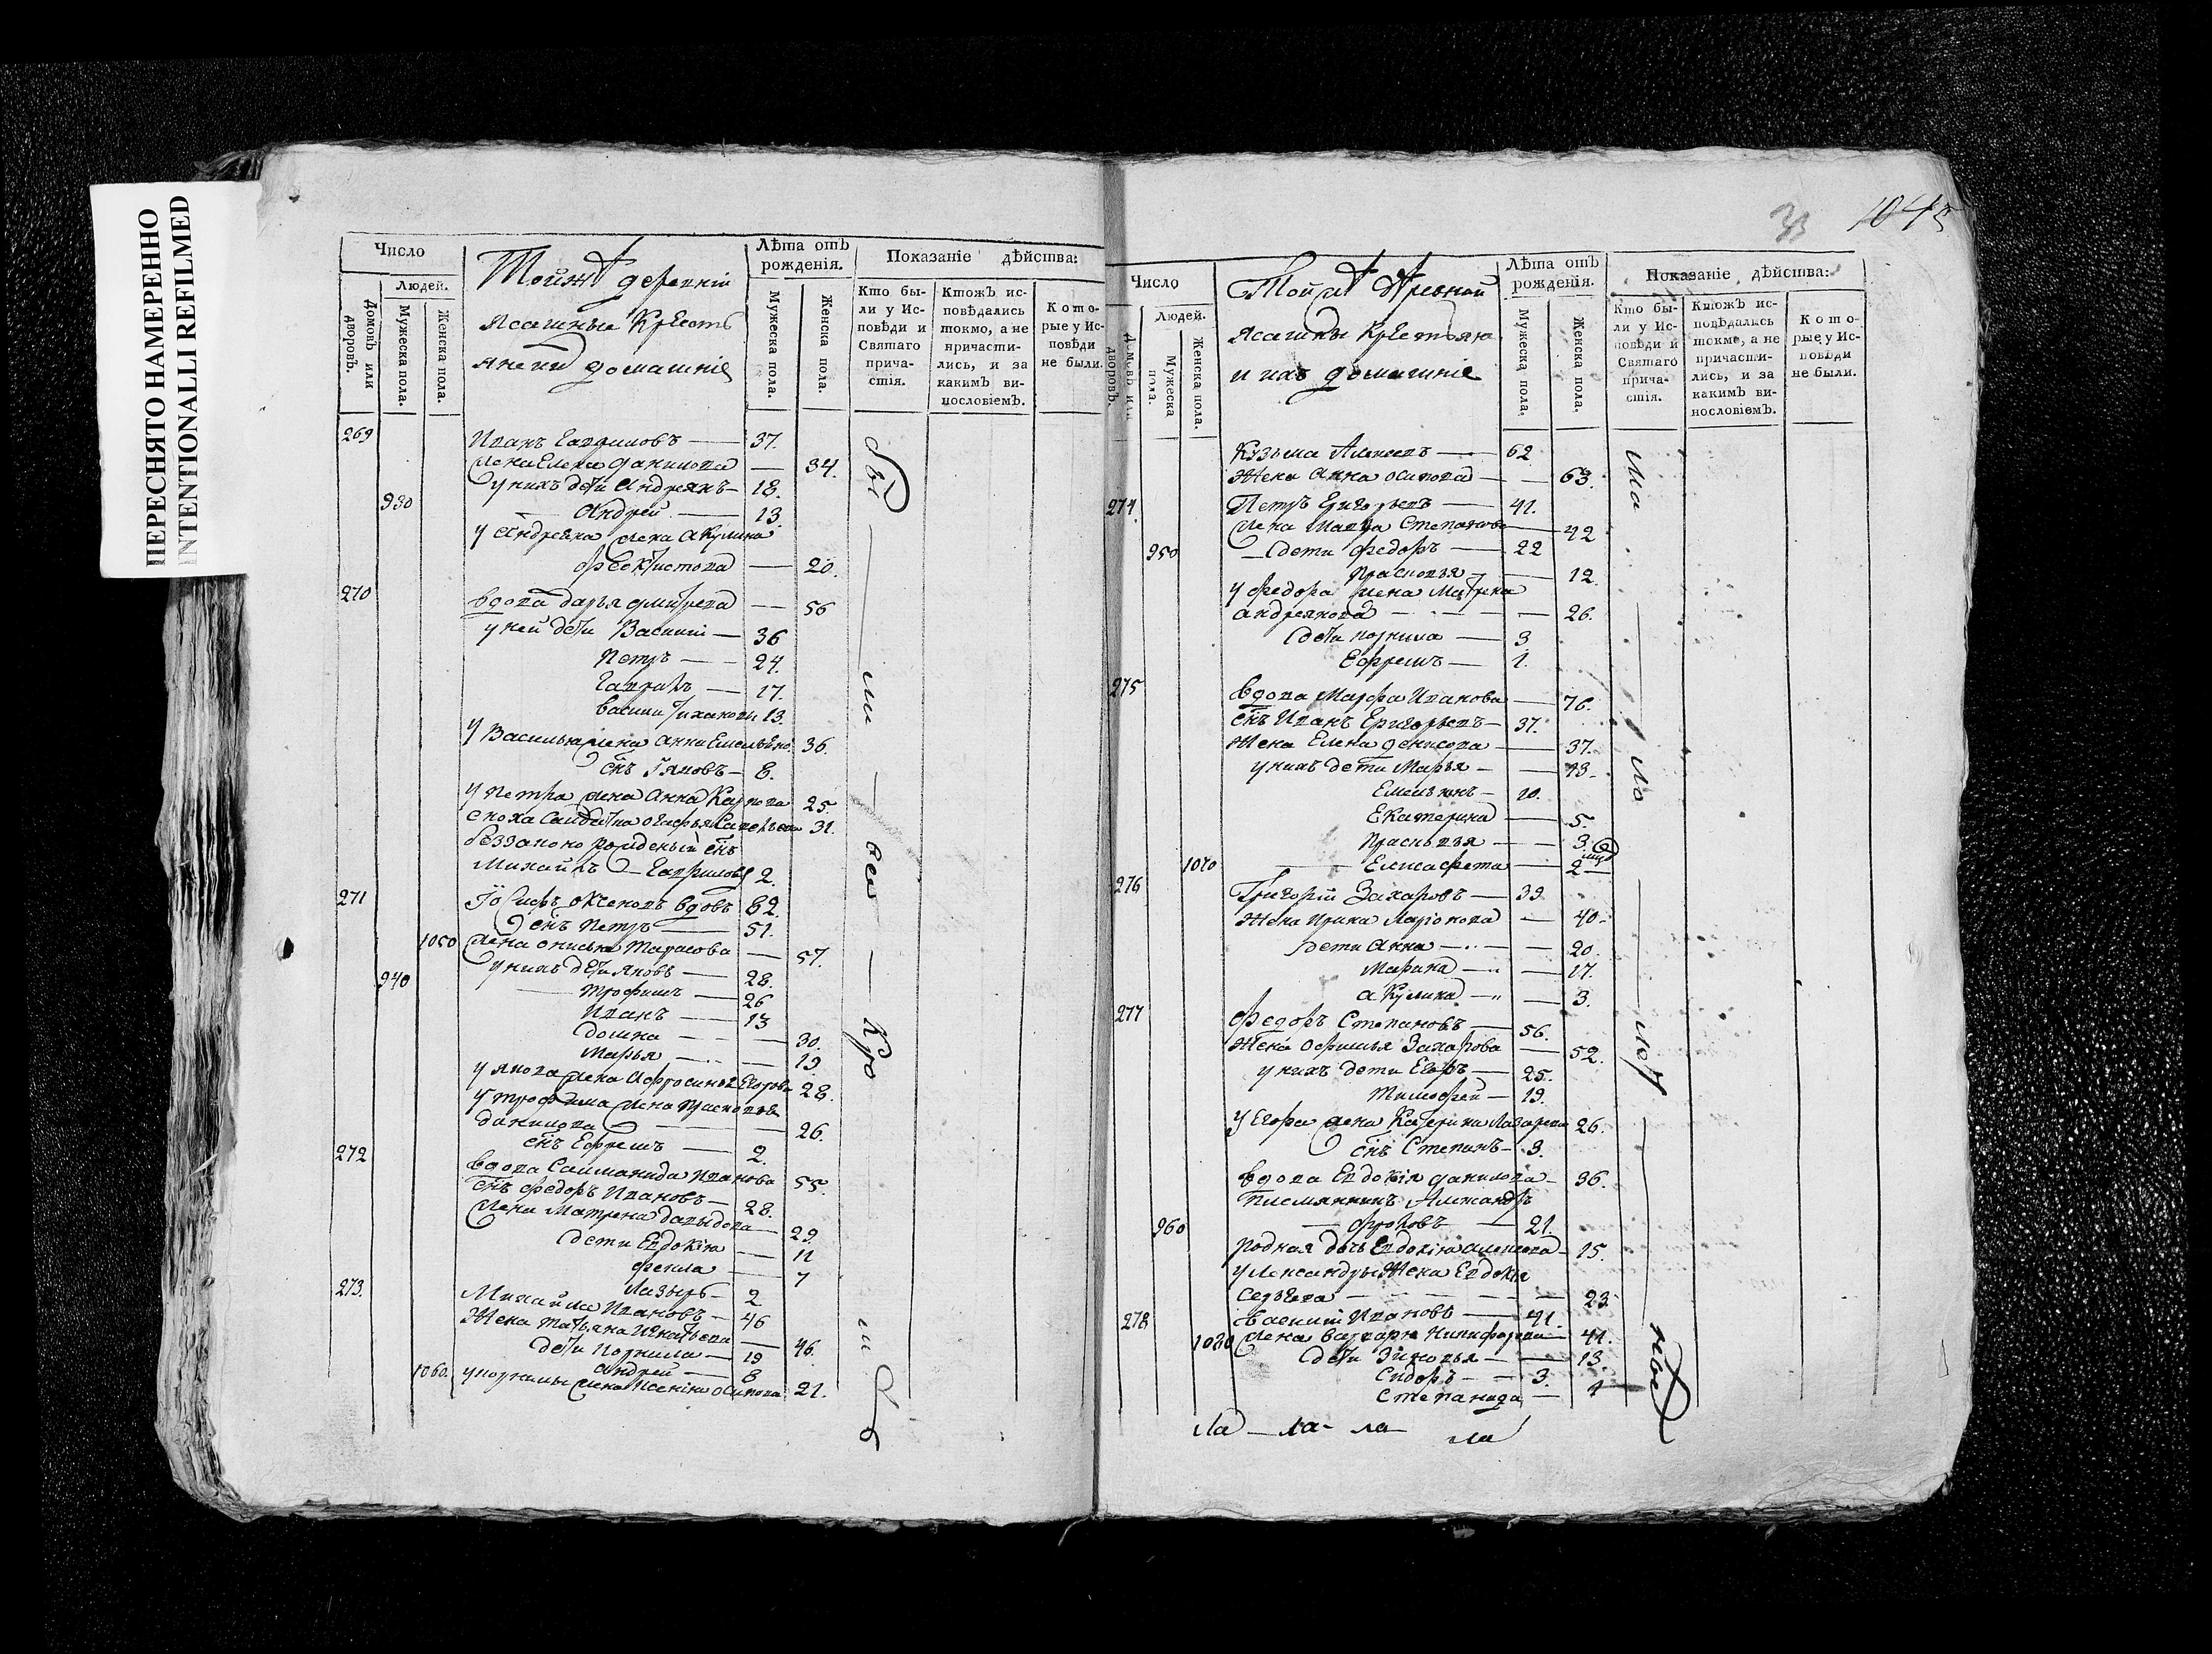 ПЕРЕСНЯТО НАМЕРЕННО
INTENTIONALLI REFILMED
Число
Людей.
Домовъ или дворовъ.
Мужеска пола.
Женска пола.
Тойжъ деревни
Ясашныя Кресть
яне ихъ домашніе
Лѣта отъ рожденія.
Мужеска пола.
Женска пола.
Показаніе дѣйства:
Кто были у Исповѣди и Святаго причастія.
Ктожъ исповѣдались токмо, а не причастились, и за какимъ винословіемъ.
Которые у Исповѣди не были.
269 Иванъ Гавриловъ — 37.
жена Елена Данилова — 34.
у нихъ дети Андреянъ — 18.
930 Андрей — 13.
у Андреяна жена Акулина
Феоктистова — 20.
270 вдова Дарья Дмитрева — 56
у ней дети Василий — 36
Петръ — 24.
Гаврилъ — 17.
Василий Тихановы 13.
у Василья жена Анна Емельяно. 36.
снъ Іяковъ — 8.
у Петра жена Анна Карпова 25
31.
беззаконо рожденый снъ
Михайлъ — Гавриловъ 2.
271 Іосифъ вдовъ 82.
снъ Петръ — 51.
1050 жена Онисья Тарасова — 57.
940 у нихъ дети Яковъ — 28.
Трофимъ — 26
Иванъ — 13
Домна — 30.
Марья — 19.
у Якова жена Афросинья Егорова 28.
у Трофима жена Прасковья
Данилова — 26.
снъ Ефремъ — 2.
272 вдова Саиманида Иванова 55.
снъ Федоръ Ивановъ — 28.
жена Матрена Давыдова — 29.
дети Евдокія — 11
Фекла — 7
Лазырь — 2
273. Михайла Ивановъ — 46
Жена Татьяна Игнатьева — 46.
дети Корнила — 19
Андрей — 8
1060. у Корнилы жена Ксенія Осипова 21.
бы — ли — все — кро — ш
1045
Число
Людей.
Домовъ или дворовъ.
Мужеска пола.
Женска пола.
Той жъ деревни
Ясашны Крестьяне
и ихъ домашніе
Лѣта отъ рожденія.
Мужеска пола.
Женска пола.
Показаніе дѣйства:
Кто были у Исповѣди и Святаго причастія.
Ктожъ исповѣдались токмо, а не причастились, и за какимъ винословіемъ.
Которые у Исповѣди не были.
Кузьма Алексевъ — 62.
Жена Анна Осипова — 63.
274. Петръ Григорьевъ — 41.
жена Степанова — 42
950 дети Федоръ — 22
Прасковья — 12.
у Федора жена Матрена
Андреянова — 26.
дети Корнила — 3
Ефремъ — 1.
275 вдова Марфа Иванова — 76.
снъ Иванъ Григорьевъ — 37.
Жена Елена Денисова — 37.
у нихъ дети Марья — 13.
Емельянъ — 10.
Екатерина — 5.
Прасковья — 3
1070 Елисафета — 2
276 Григорій Захаровъ — 39
Жена Ирина Ларіонова — 40.
дети Анна — 20.
Марина — 17.
Акулина — 3.
277 Федоръ Степановъ — 56.
Жена Офимья Захарова — 52.
у нихъ дети Егоръ — 25.
Тимофей — 19.
у Егора жена Катерина Лазарева 26.
снъ Степанъ — 3.
вдова Евдокія Данилова — 36.
племянникъ Александръ
960 Фроловъ — 21.
родная дочь Евдокія — 15.
у Лександры Жена Евдокія
Сергеева — 23.
278 Василий Ивановъ — 41.
1080 жена Варвара Никифорова — 41.
дети Зиновья — 13.
Сидоръ — 3.
Степанида — 1
ла — ла — ла
ла